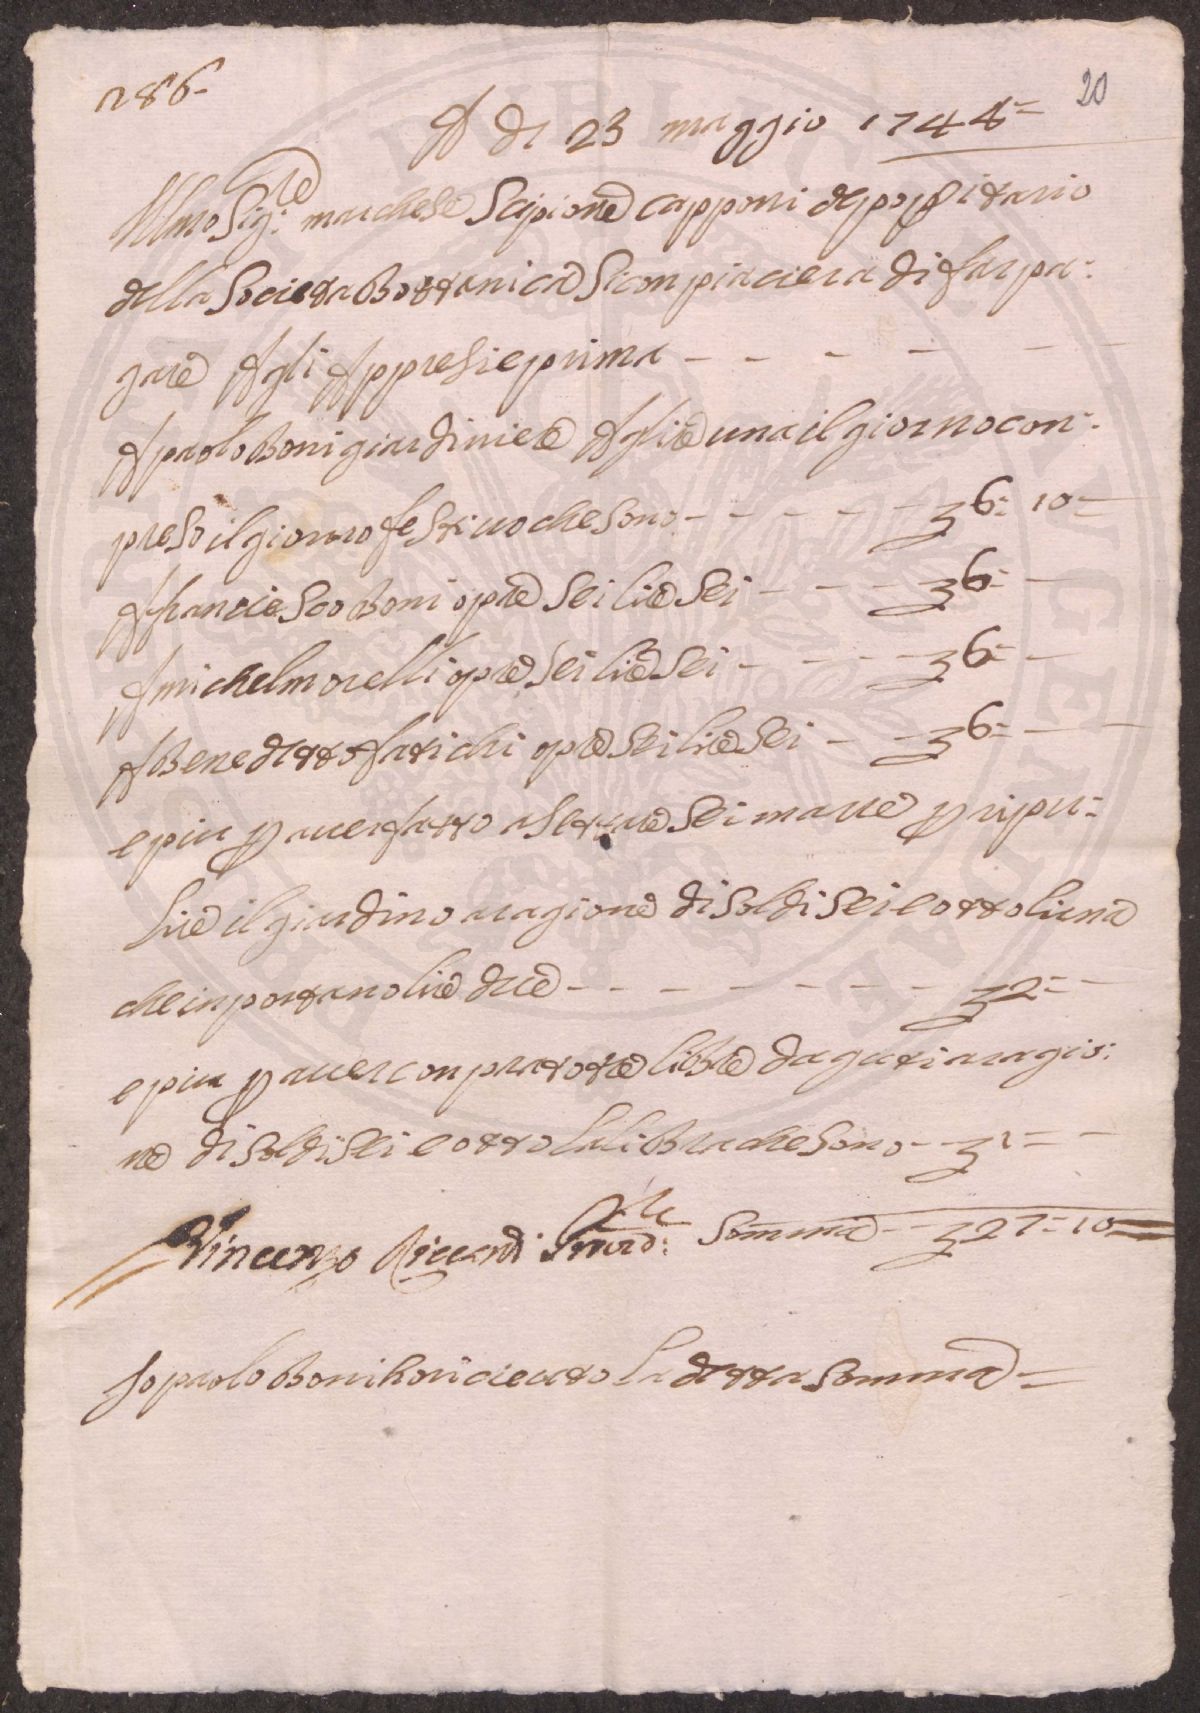 286.
20
A di 23 maggio 1744=
Illmo Sig:re marchese Scipione capponi depossitario
della Societa Bottanica Si conpiaciera di far pa:
gare Agli Appresi e prima
A paolo Boni giardiniere A lire una il giorno con:
preso il giorno festivo che sono £ 6= 10=
A franciesco Boni opre sei lire sei £ 6=
A michel morelli opre sei lire sei £ 6=
A Benedetto fatichi opre sei lire sei £ 6=
e piu p aver fatto asettare sei marre p ripu:
lire il giardino a ragione di soldi sei e otto l'una
che inportano lire due £ 2=
e piu p aver conprato tre libre d aguti a ragio:
ne di soldi sei e otto la libra che sono £ 1=
Vincenzo Riccardi Somma £ 27= 10=
Io paolo Boni ho ricieuto la detta somma=